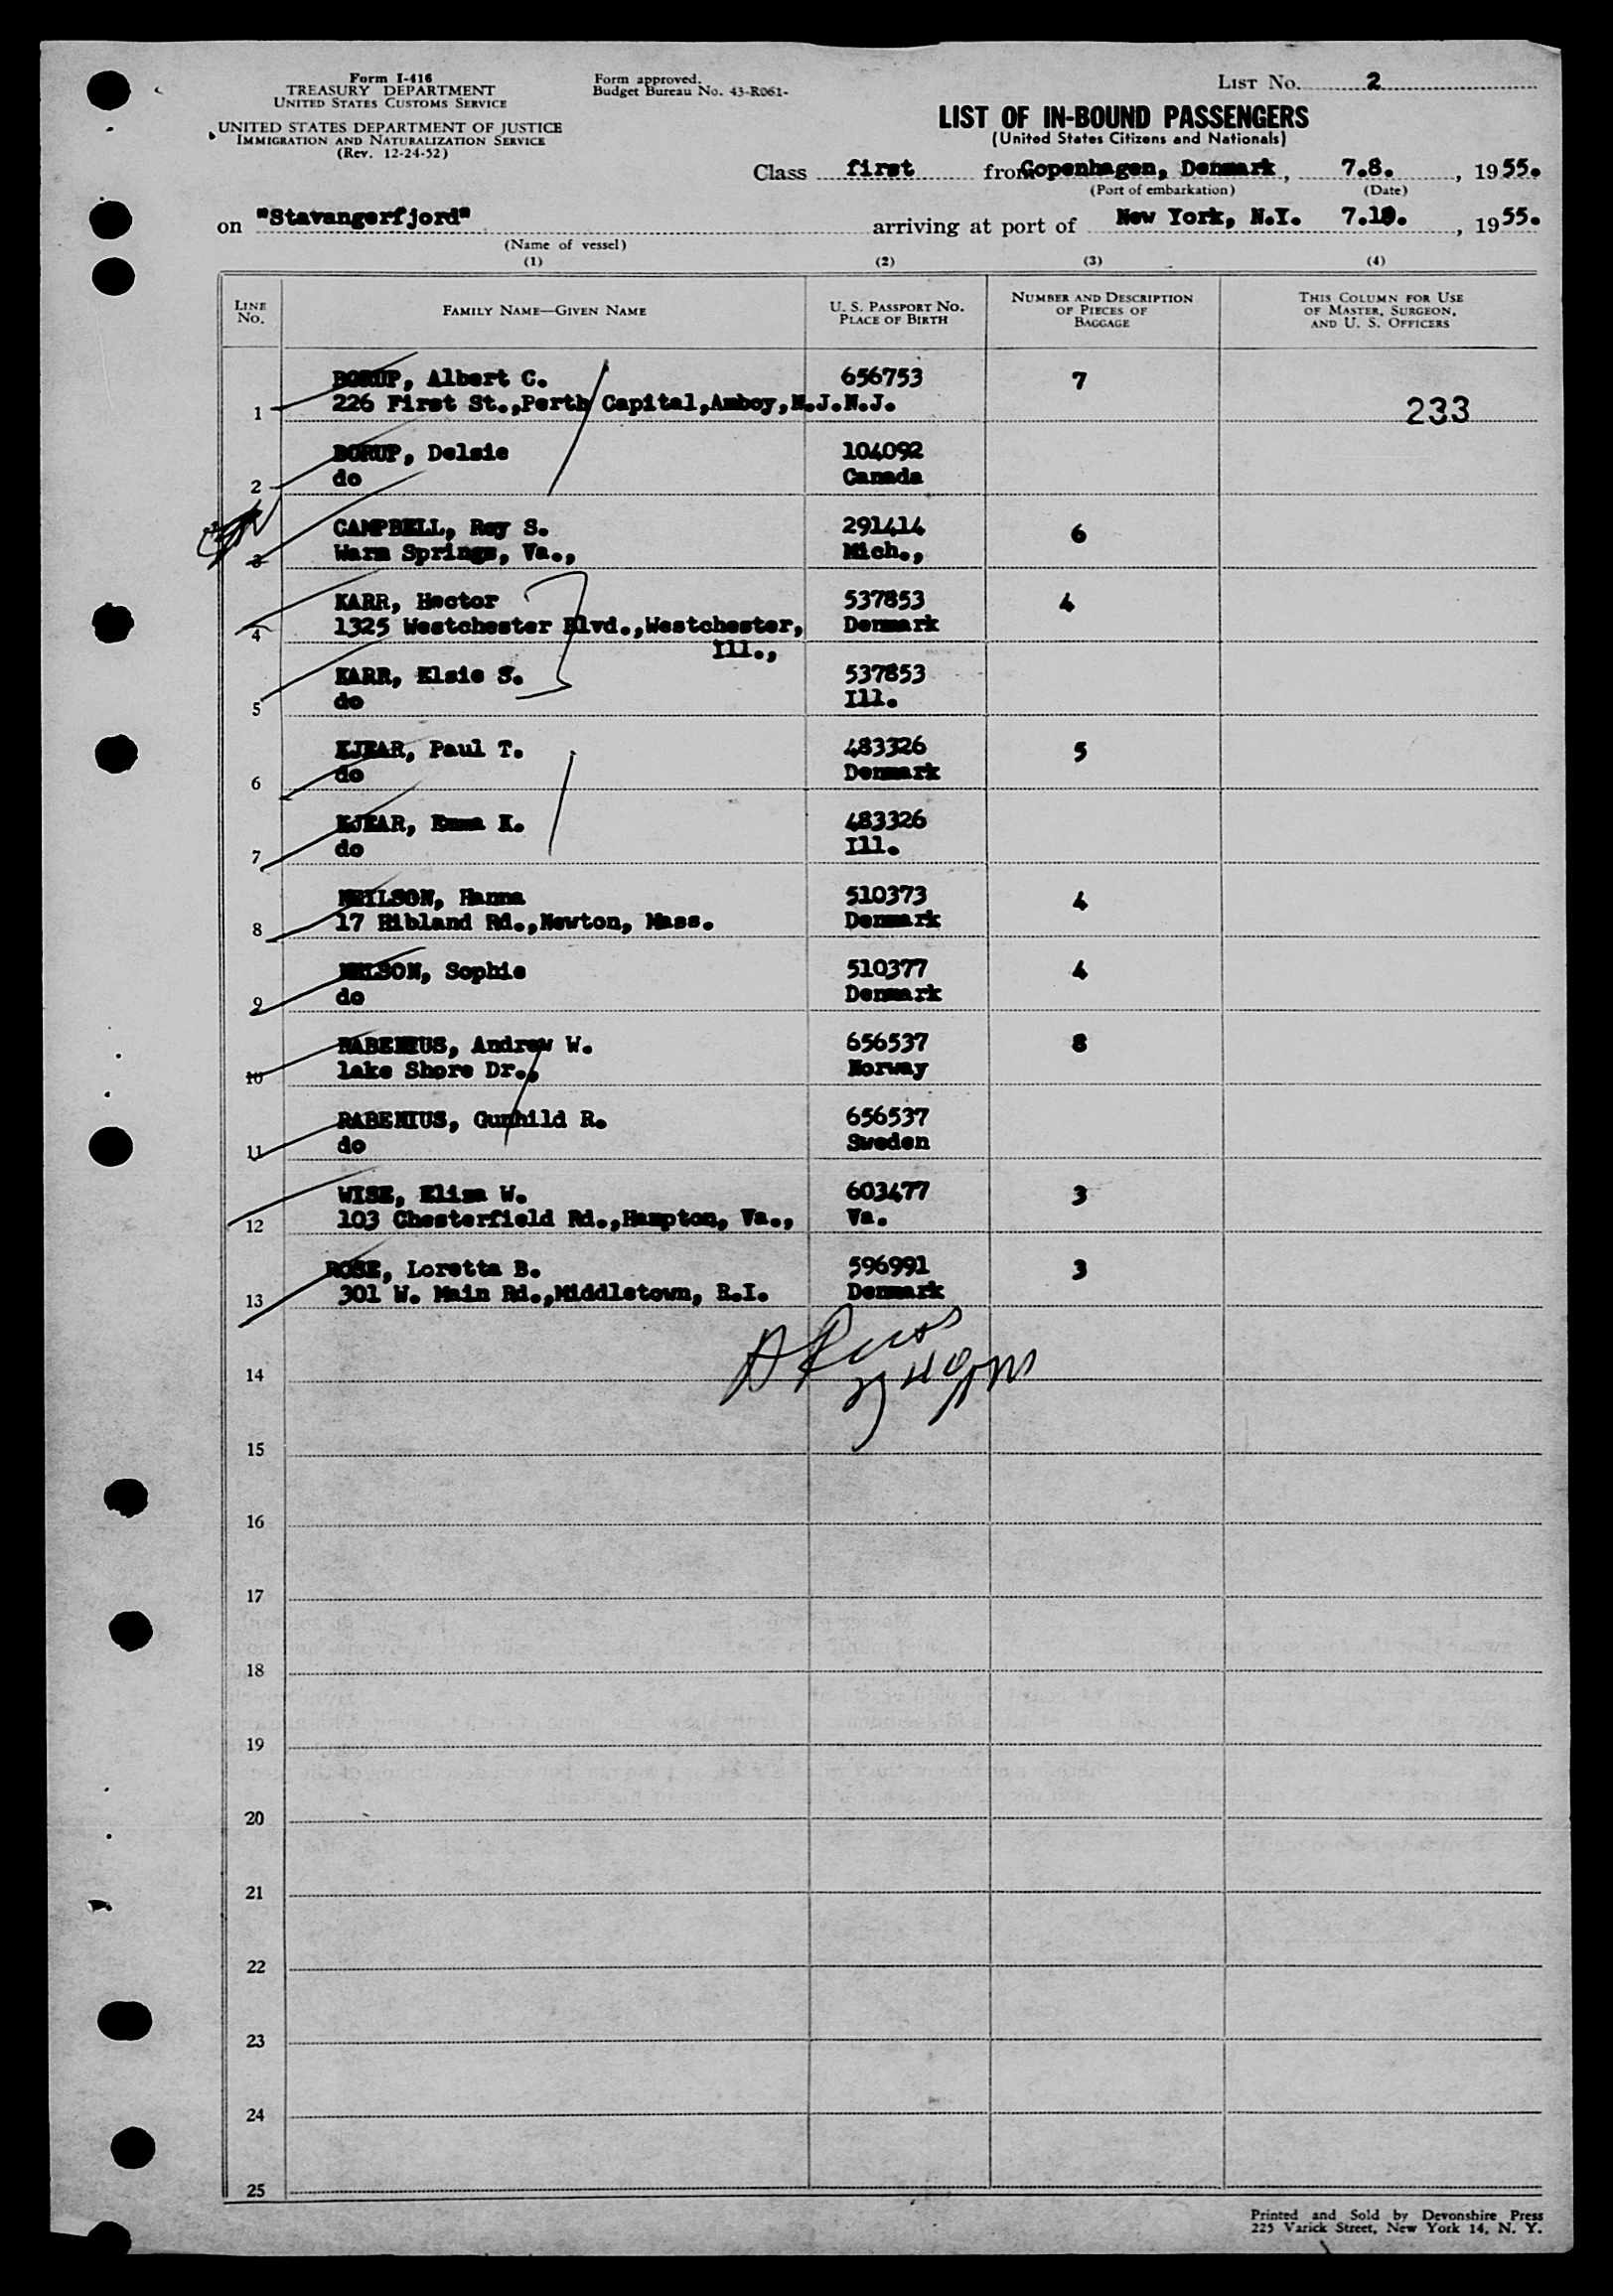 Form I-416
TREASURY DEPARTMENT
UNITED STATES CUSTOMS SERVICE
UNITED STATES DEPARTMENT OF JUSTICE
IMMIGRATION AND NATURALIZATION SERVICE
(Rev. 12-24-52)
Form approved.
Budget Bureau No. 43-R061-
LIST No. 2
LIST OF IN-BOUND PASSENGERS
(United States Citizens and Nationals)
Class first from Copenhagen, Denmark, 7.8., 1955.
(Port of embarkation) (Date)
on "Stavangerfjord" arriving at port of New York, N.Y. 7.19., 1955.
(Name of vessel)
(1) (2) (3) (4)
LINE No. FAMILY NAME—GIVEN NAME U. S. PASSPORT No. PLACE OF BIRTH NUMBER AND DESCRIPTION OF PIECES OF BAGGAGE THIS COLUMN FOR USE OF MASTER, SURGEON, AND U. S. OFFICERS
BORUP, Albert C. 656753 7
1 226 First St.,Perth Capital,Amboy,N.J.N.J. 233
BORUP, Delsie 104092
2 do Canada
CAMPBELL, Roy S. 291414 6
3 Warm Springs, Va., Mich.,
KARR, Hector 537853 4
4 1325 Westchester Blvd.,Westchester, Denmark
Ill.,
KARR, Elsie S. 537853
5 do Ill.
KJEAR, Paul T. 483326 5
6 do Denmark
KJEAR, Emma K. 483326
7 do Ill.
NEILSON, Hanna 510373 4
8 17 Ribland Rd.,Newton, Mass. Denmark
NELSON, Sophie 510377 4
9 do Denmark
RABENIUS, Andrew W. 656537 8
10 lake Shore Dr., Norway
RABENIUS, Gunhild R. 656537
11 do Sweden
WISE, Eliza W. 603477 3
12 103 Chesterfield Rd.,Hampton, Va., Va.
ROSE, Loretta B. 596991 3
13 301 W. Main Rd.,Middletown, R.I. Denmark
14
15
16
17
18
19
20
21
22
23
24
25
Printed and Sold by Devonshire Press
225 Varick Street, New York 14, N. Y.